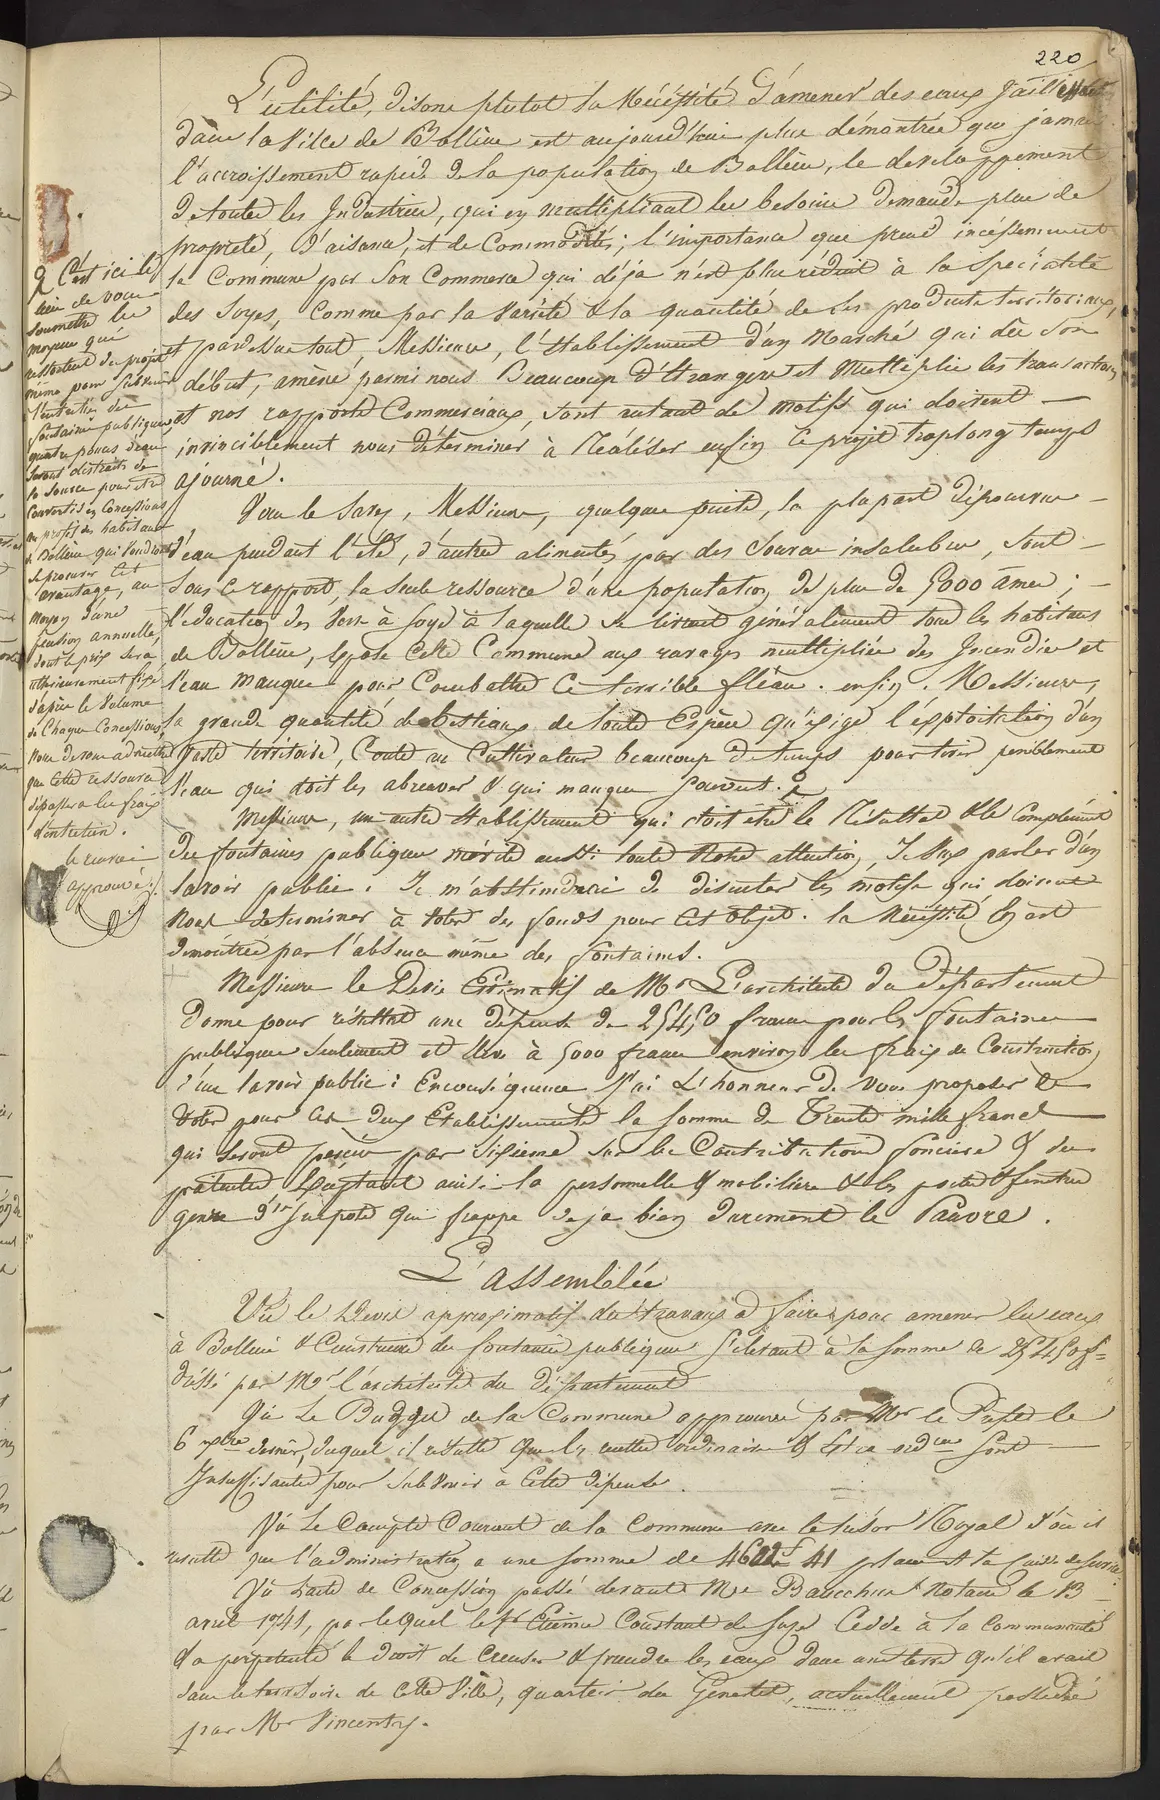 220
L'utilité, disons plutot la Nécéssité d'amener des eaux Jaillissantes
dans la Ville de Bollène est aujourd'hui plus démontrée que jamais
l'accroissement rapide de la population de Bollène, le developpement
de toutes les Industries, qui en multipliant les besoins demande plus de
propreté, d'aisance, et de Commodités; l'importance que prend incéssemment
la Commune par son Commerce qui déja n'est plus réduit à la Spécialité
des Soyes, Comme par la Variété & la quantité de ses produits territoriaux,
et pardessus tout, Messieurs, l'établissement d'un Marché qui dès son
début, amène parmi nous Beaucoup d'étrangers et Multiplie les transactions
et nos rapports Commerciaux, sont autant de motifs qui doivent —
invinciblement nous déterminer à Réaliser enfin le projet trop long temps
ajourné.
Vous le Savez, Messieurs, quelques puits, la plupart dépourvus —
d'eau pendant l'été, d'autres alimentés par des Sources insalubres, sont —
sous ce rapport, la seule ressource d'une population de plus de 5000 âmes; —
l'éducation des Vers à soye à laquelle se livrent généralement tous les habitans
de Bollène, expose cette Commune aux ravages multipliés des Incendies et
l'eau manque pour Combattre ce terrible fléau. enfin. Messieurs,
la grande quantité de bestiaux de toute Espèce qu'éxige l'éxploitation d'un
Vaste territoire, Coute au Cultivateur beaucoup de temps pour tirer peniblement
l'eau qui doit les abreuver & qui manque souvent.
Messieurs, un autre établissement qui doit etre le Résultat & le Complément
des fontaines publiques mérite aussi toute Votre attention, Je veux parler d'un
lavoir public. Je m'abstiendrai de discuter les motifs qui doivent
nous determiner à Voter des fonds pour cet objet. la Nécéssité en est
démontrée par l'absence même des fontaines.
Messieurs le Devis Estimatif de Mr L'architecte du Département
donne pour résultat une dépense de 25450 francs pour les fontaines
publiques seulement et élève à 5000 francs environ les frais de Construction
d'un lavoir public: En conséquence J'ai L'honneur de Vous proposer de
Voter pour ces deux Etablissements la somme de Trente mille francs
qui seront perçus par sixieme sur les Contributions foncière & des
patentes Exceptant ainsi la personnelle & mobilière & les portes & fenetres
genre d'impots qui frappe deja bien durement le Pauvre.
L'assemblée
Vu le Devis approximatif des travaux à faire pour amener les eaux
à Bollène & Construire des fontaines publiques s'élevant à la somme de 25450 f
dréssé par Mr l'architecte du Département
Vu Le Budget de la Commune approuvé par Mr le Préfet le
6 9bre dernier, duquel il résulte que les recettes ordinaires & Extraordres sont —
Insuffisantes pour subvenir à cette dépense.
Vu Le Compte Courant de la Commune avec le trésor Royal d'où il
resulte que l'administration a une somme de 4622 f 41 placée à la caisse de service
Vu L'acte de Concéssion passé devant Me Baucchu Notaire le 13
avril 1741, par lequel le Sr Etienne Constant de Suze Cedde à la Communauté
& a perpétuité le droit de Creuser & prendre les eaux dans une terre qu'il avait
dans le terroir de cette Ville, quartier du Genestet, actuellement possédée
par Mr Vincenty.
C'est ici le
lieu de vous
soumettre les
moyens qui
ressortent du projet
même pour subvenir
l'entretien des
fontaines publiques
quatre pouces d'eau
seront distraits de
la source pour etre
Convertis en Concessions
au profit des habitans
de Bollène qui Voudront
se procurer cet
avantage, au
moyen d'une
pension annuelle,
dont le prix sera
ultérieurement fixé
d'après le Volume
de Chaque Concession.
Nous devons admettre
que cette ressource
dépassera les frais
d'entretien.
le renvoi
approuvé